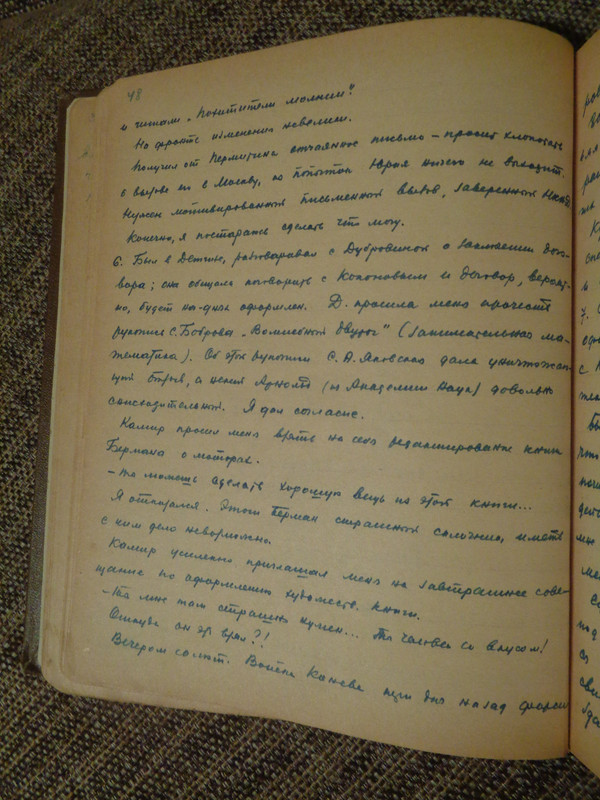 48
и читали „Похитители молнии".
На фронте изменения невелики.
Получил от Пермитина отчаянное письмо – просит хлопотать
о вызове его в Москву, но попытки Юрия ничего не выходит.
Нужен мотивированный письменный вызов, заверенный
Конечно, я постараюсь сделать что могу.
6. Был в Детгизе, разговаривал с Дубровиной о заключении дого-
вора; она обещала поговорить с Кононовым и договор, вероят-
но, будет на-днях оформлен. Д. просила меня прочесть
рукопись С. Боброва „Волшебный двурог" (занимательная ма-
тематика). Об этой рукописи С. А. Яновская дала уничтожаю-
щий отзыв, а некий Арнольд (из Академии Наук) довольно
снисходительный. Я дал согласие.
Камир просил меня взять на себя редактирование книги
Бермана о моторах.
– Ты можешь сделать хорошую вещь из этой книги...
Я отказался. Этот Берман страшный склочник, иметь
с ним дело невозможно.
Камир усиленно приглашал меня на завтрашнее сове-
щание по оформлению художеств. книги.
– Ты мне там страшно нужен... Ты человек со вкусом!
Откуда он это взял?!
Вечером салют. Войска Конева три дня назад